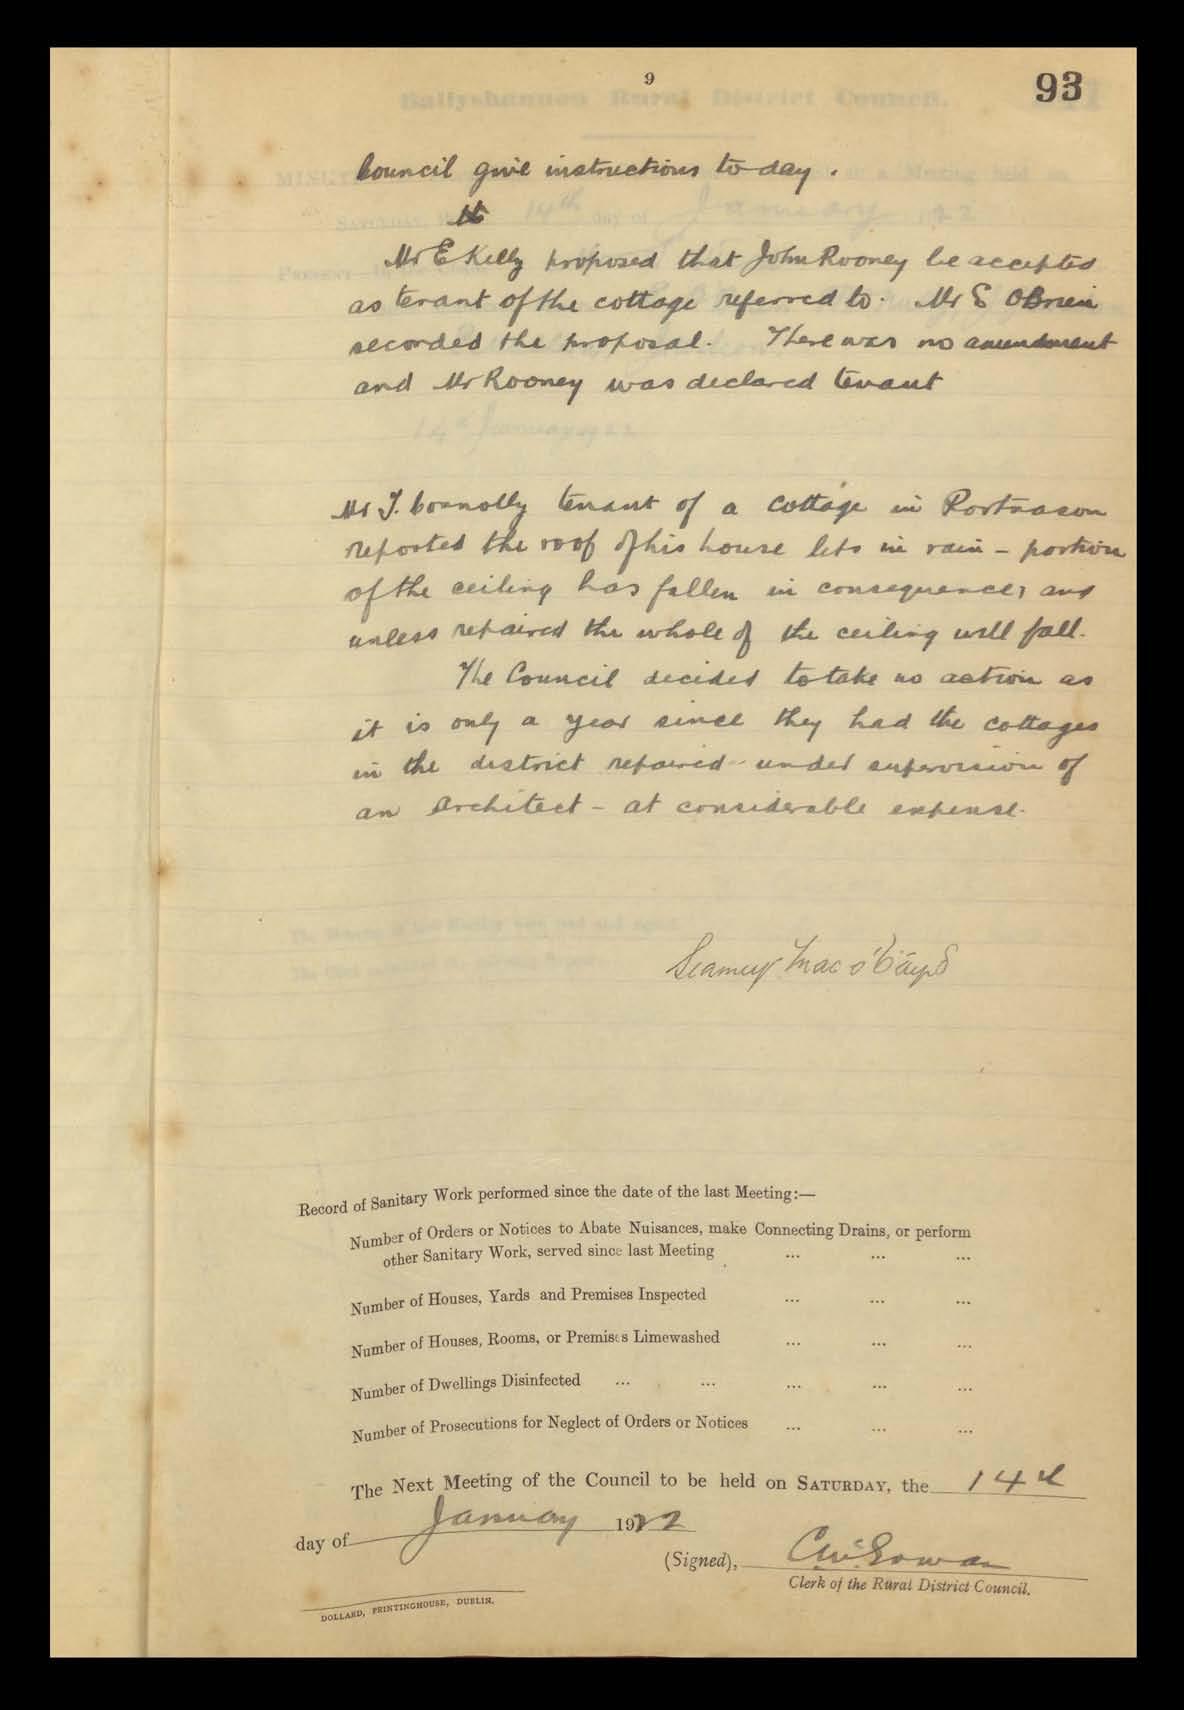 9
93
Council give instructions to-day.
Mr E Kelly proposed that John Rooney be accepted
as tenant of the cottage referred to. Mr E OBrien
seconded the proposal. There was no amendment
and Mr Rooney was declared tenant
Mr J. Connolly tenant of a cottage in Portnason
reported the roof of his house lets in rain - portion
of the ceiling has fallen in consequence, and
unless repaired the whole of the ceiling will fall.
The Council decided to take no action as
it is only a year since they had the cottages
in the district repaired - under supervision of
an Architect - at considerable expense.
Seamus Mac
Record of Sanitary Work performed since the date of the last Meeting:—
Number of Orders or Notices to Abate Nuisances, make Connecting Drains, or perform
other Sanitary Work, served since last Meeting ... ... ...
Number of Houses, Yards and Premises Inspected ... ... ...
Number of Houses, Rooms, or Premises Limewashed ... ... ...
Number of Dwellings Disinfected ... ... ... ... ...
Number of Prosecutions for Neglect of Orders or Notices ... ... ...
The Next Meeting of the Council to be held on SATURDAY, the 14th
day of January 1922
(Signed), C McGowan
Clerk of the Rural District Council.
DOLLARD, PRINTINGHOUSE, DUBLIN.